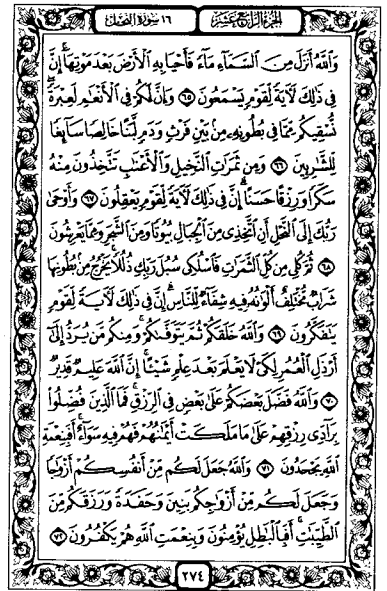 الجزء الرابع عشر
١٦ سورة النحل
وَٱللَّهُ أَنزَلَ مِنَ ٱلسَّمَآءِ مَآءً فَأَحْيَا بِهِ ٱلْأَرْضَ بَعْدَ مَوْتِهَآ ۚ إِنَّ
فِى ذَٰلِكَ لَءَايَةً لِّقَوْمٍ يَسْمَعُونَ ٦٥ وَإِنَّ لَكُمْ فِى ٱلْأَنْعَٰمِ لَعِبْرَةً ۖ
نُّسْقِيكُم مِّمَّا فِى بُطُونِهِۦ مِنۢ بَيْنِ فَرْثٍ وَدَمٍ لَّبَنًا خَالِصًا سَآئِغًا
لِّلشَّٰرِبِينَ ٦٦ وَمِن ثَمَرَٰتِ ٱلنَّخِيلِ وَٱلْأَعْنَٰبِ تَتَّخِذُونَ مِنْهُ
سَكَرًا وَرِزْقًا حَسَنًا ۗ إِنَّ فِى ذَٰلِكَ لَءَايَةً لِّقَوْمٍ يَعْقِلُونَ ٦٧ وَأَوْحَىٰ
رَبُّكَ إِلَى ٱلنَّحْلِ أَنِ ٱتَّخِذِى مِنَ ٱلْجِبَالِ بُيُوتًا وَمِنَ ٱلشَّجَرِ وَمِمَّا يَعْرِشُونَ
٦٨ ثُمَّ كُلِى مِن كُلِّ ٱلثَّمَرَٰتِ فَٱسْلُكِى سُبُلَ رَبِّكِ ذُلُلًا ۚ يَخْرُجُ مِنۢ بُطُونِهَا
شَرَابٌ مُّخْتَلِفٌ أَلْوَٰنُهُۥ فِيهِ شِفَآءٌ لِّلنَّاسِ ۗ إِنَّ فِى ذَٰلِكَ لَءَايَةً لِّقَوْمٍ
يَتَفَكَّرُونَ ٦٩ وَٱللَّهُ خَلَقَكُمْ ثُمَّ يَتَوَفَّىٰكُمْ ۚ وَمِنكُم مَّن يُرَدُّ إِلَىٰٓ
أَرْذَلِ ٱلْعُمُرِ لِكَىْ لَا يَعْلَمَ بَعْدَ عِلْمٍ شَيْـًٔا ۚ إِنَّ ٱللَّهَ عَلِيمٌ قَدِيرٌ
٧٠ وَٱللَّهُ فَضَّلَ بَعْضَكُمْ عَلَىٰ بَعْضٍ فِى ٱلرِّزْقِ ۚ فَمَا ٱلَّذِينَ فُضِّلُوا۟
بِرَآدِّى رِزْقِهِمْ عَلَىٰ مَا مَلَكَتْ أَيْمَٰنُهُمْ فَهُمْ فِيهِ سَوَآءٌ ۚ أَفَبِنِعْمَةِ
ٱللَّهِ يَجْحَدُونَ ٧١ وَٱللَّهُ جَعَلَ لَكُم مِّنْ أَنفُسِكُمْ أَزْوَٰجًا
وَجَعَلَ لَكُم مِّنْ أَزْوَٰجِكُم بَنِينَ وَحَفَدَةً وَرَزَقَكُم مِّنَ
ٱلطَّيِّبَٰتِ ۚ أَفَبِٱلْبَٰطِلِ يُؤْمِنُونَ وَبِنِعْمَتِ ٱللَّهِ هُمْ يَكْفُرُونَ ٧٢
٢٧٤